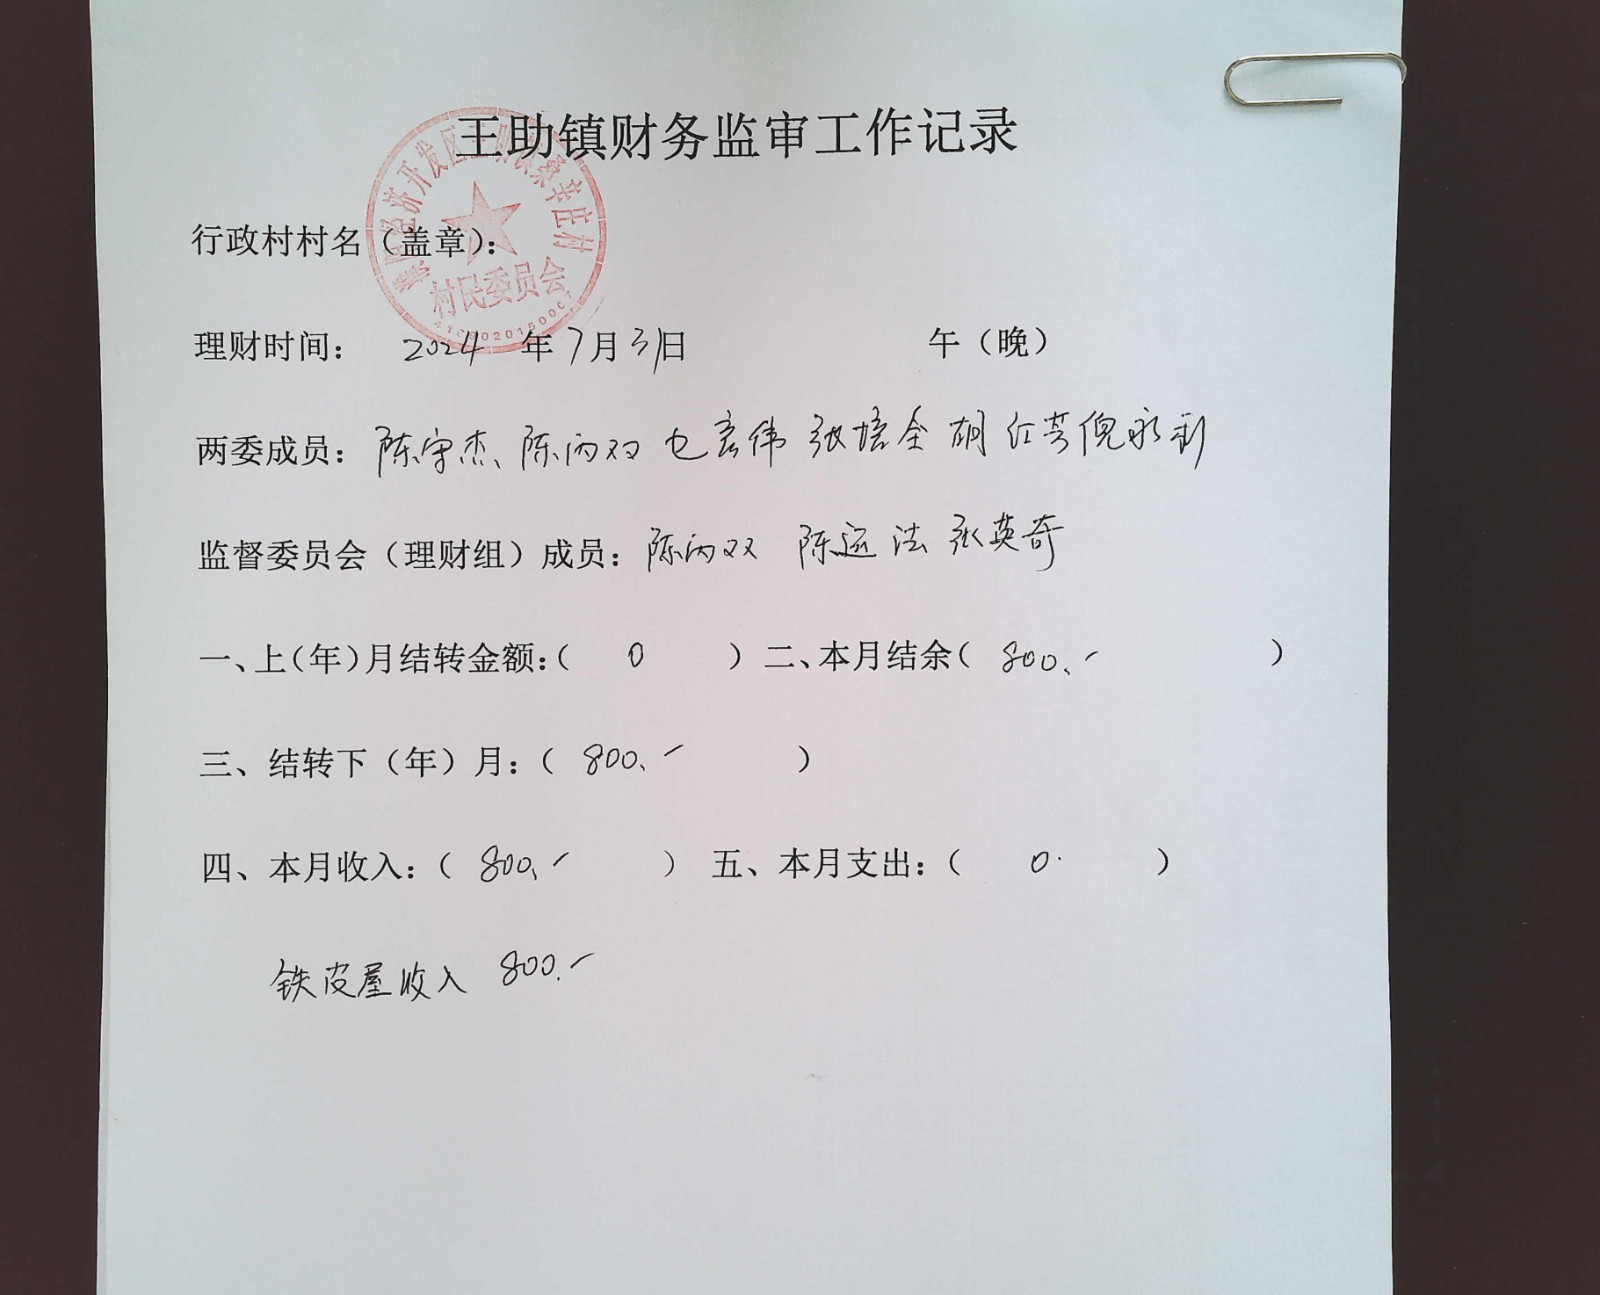 王助镇财务监审工作记录
经济开发区王助镇桑辛庄村
村民委员会
行政村村名（盖章）：
理财时间： 2024 年 7月31日 午（晚）
两委成员： 陈守杰、陈丙双 宏伟 张培全 胡 倪永利
监督委员会（理财组）成员：陈丙双 陈运法 张英奇
一、上（年）月结转金额：（ 0 ） 二、本月结余（ 800.- ）
三、结转下（年）月：（ 800.- ）
四、本月收入：（ 800.- ） 五、本月支出：（ 0. ）
铁皮屋收入 800.-